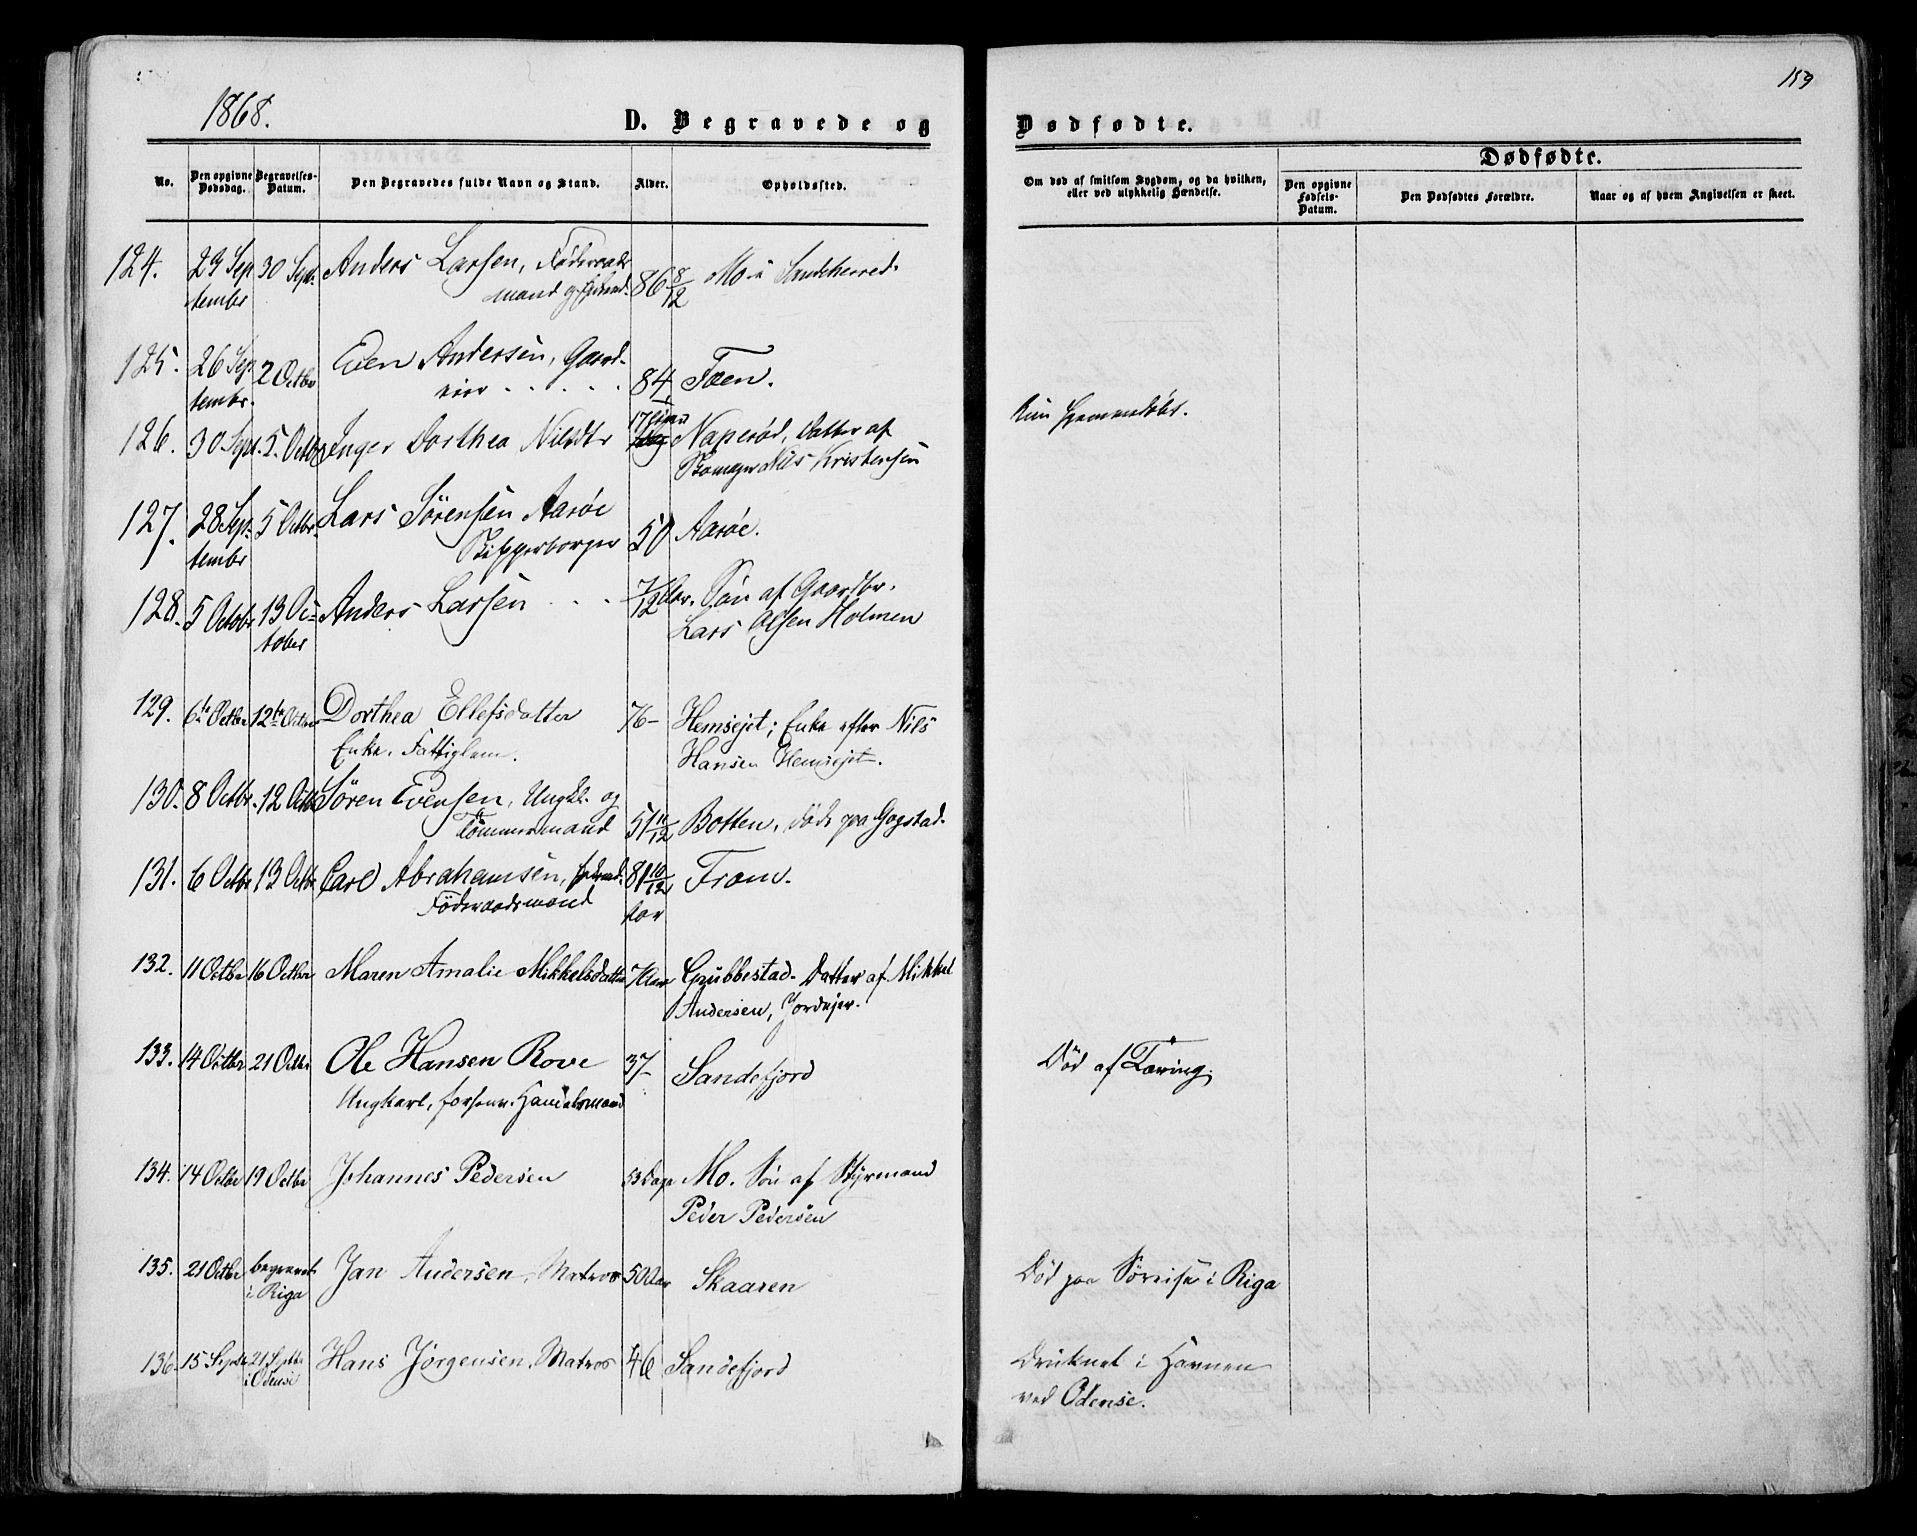 153
1868.
D. Begravede og
Dødfødte.
No.
Den opgivne Dødsdag.
Begravelses-Datum.
Den Begravedes fulde Navn og Stand.
Alder.
Opholdssted.
Om død af smitsom Sygdom, og da hvilken, eller ved ulykkelig Hændelse.
Dødfødte.
Den opgivne Fødsels-Datum.
Den Dødfødtes Forældre.
Naar og af hvem Angivelsen er skeet.
124. 29 Sep 30 Sept. Anders Larsen, Föderaads 86 8/12 Mo i Sandeherred.
tembr mand
125. 26 Sep 2 Octbr Even Andersen, Gaard- 84 Foen.
tembr. eier . . . . .
126. 30 Sept. 5. Octbr Inger Dorthea Nilsdtr 17 Naperød, Datter af Kun hjemmedøbt.
Skomager Nils Kristensen
127. 28 Sep- 5 Octbr. Lars Sørensen Aarøe 50 Aarøe.
tembr Skipperborger
128. 5 Octobr 13 Oc- Anders Larsen . . . 7/12 Aar. Søn af Gaardbr.
tober Lars Olsen Holmen
129. 6te Octbr 12te Octbr Dorthea Ellefsdatter 76- Hemsejet; Enke efter Nils
Enke. Fattiglem. Hansen Hemsejet.
130. 8 Octbr. 12 Octbr Søren Evensen, Ungkl. og 51 11/12 Botten, døde paa Gogstad.
Tömmermand
131. 6 Octbr 13 Octbr Carl Abrahamsen, 81 10/12 From.
Föderaadsmand Aar
132. 11 Octbr 16 Octbr Maren Amalie Mikkelsdatter 7 Aar Grubbestad. Datter af Mikkel
Andersen, Jordejer.
133. 14 Octbr 21 Octbr Ole Hansen Rove 37- Sandefjord Död af Tæring.
Ungkarl, forhenv. Handelsmand
134. 14 Octbr 19 Octbr Johannes Pedersen 53 Dage Mo. Søn af Styrmand
Peder Pedersen
135. 21 Octbr begravet Jan Andersen, Matros 50 Aar Skaaren Död paa Söreise i Riga
i Riga
136. 15 Septbr 21 Septbr Hans Jørgensen, Matros 46 Sandefjord Druknet i Havnen
i Odense ved Odense.